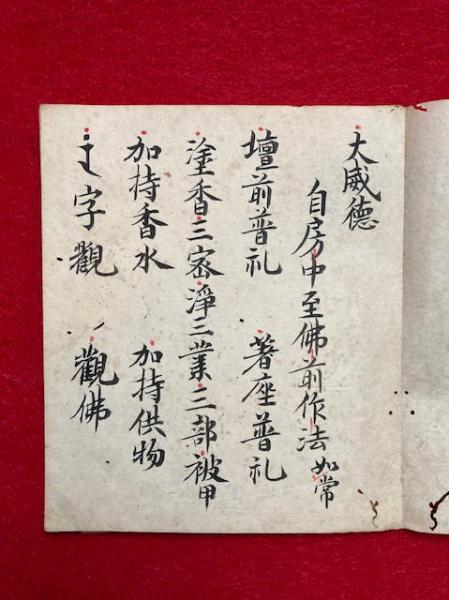 大威德
自房中至佛前作法如常
壇前普礼 著座普礼
塗香三密淨三業三部被甲
加持香水 加持供物
字觀 觀佛